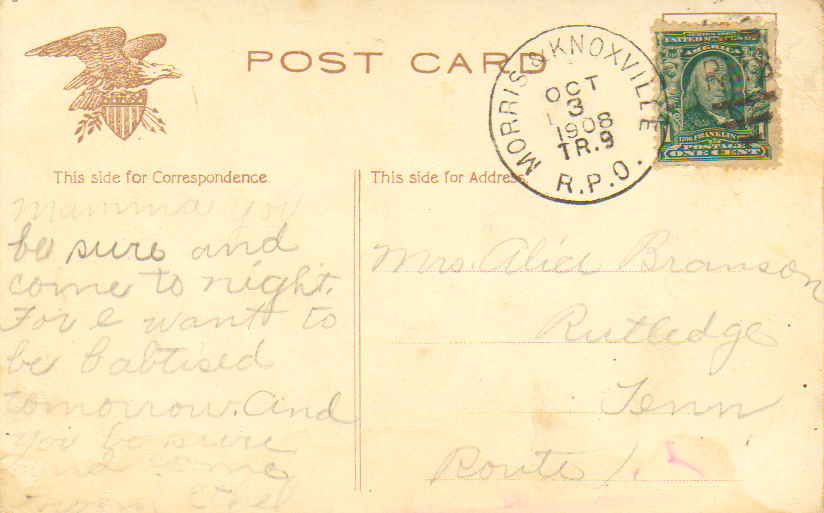 POST CARD
MORRIS & KNOXVILLE
OCT
3
1908
TR. 9
R.P.O.
UNITED STATES OF
AMERICA
FRANKLIN
POSTAGE
ONE CENT
This side for Correspondence
This side for Address
Mamma you
be sure and
come to night.
For I want to
be babtised
tomorrow. And
you be sure
and come
from Ethel
Mrs. Alice Branson
Rutledge
Tenn
Route 1.